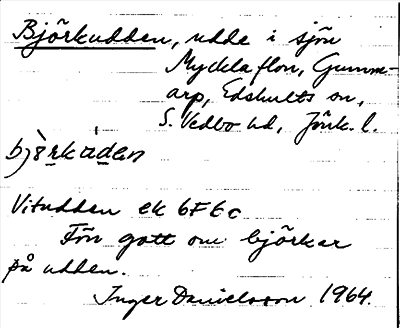 Björkudden, udde i sjön
Mycklaflon, Gumm-
arp, Edshults sn,
S. Vedbo hd, Jönk. l.
Vitudden ek 6F6c
Fön gott om björkar
på udden.
Inger Danielsson 1964.